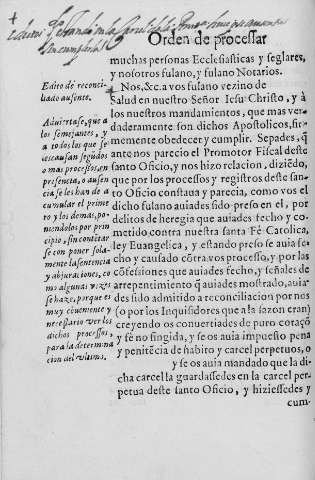 Orden de processar
muchas personas Ecclesiasticas y seglares,
y nosotros fulano, y fulano Notarios.
Nos, &c. a vos fulano vezino de
Salud en nuestro Señor Iesu Christo, y à
los nuestros mandamientos, que mas ver-
daderamente son dichos Apostolicos, fir-
memente obedecer y cumplir. Sepades, q̃
ante nos parecio el Promotor Fiscal deste
santo Oficio, y nos hizo relacion, diziẽdo,
que por los processos y registros deste san-
to Oficio constaua y parecia, como vos el
dicho fulano auiades sido preso en el, por
delitos de heregia que auiades fecho y co-
metido contra nuestra santa Fè Catolica,
ley Euangelica, y estando preso se auia fe-
cho y causado cõtra vos processo, y por las
cõfesiones que auiades fecho, y señales de
arrepentimiento q̃ auiades mostrado, auia-
des sido admitido a reconciliacion por nos
(o por los Inquisidores que a la sazon eran)
creyendo os conuertiades de puro coraçõ
y fè no fingida, y se os auia impuesto pena
y penitẽcia de habito y carcel perpetuos, o
y se os auia mandado que la di-
cha carcel la guardassedes en la carcel per-
petua deste santo Oficio, y hiziessedes y
cum-
Edito de reconci-
liado ausente.
Aduiertase, que a
los semejantes, y
a todos los que se
les causan segũdos
o mas processos, en
presencia, o ausen
cia se les han de a
cumular el prime
ro y los demas, po-
niendolos por prin
cipio, sin contẽtar
se con poner sola-
mente la sentencia
y abjuraciones, co
mo algunas vezes
se haze, porque es
muy conueniente y
necessario ver los
dichos processos,
para la determina
cion del vltimo.